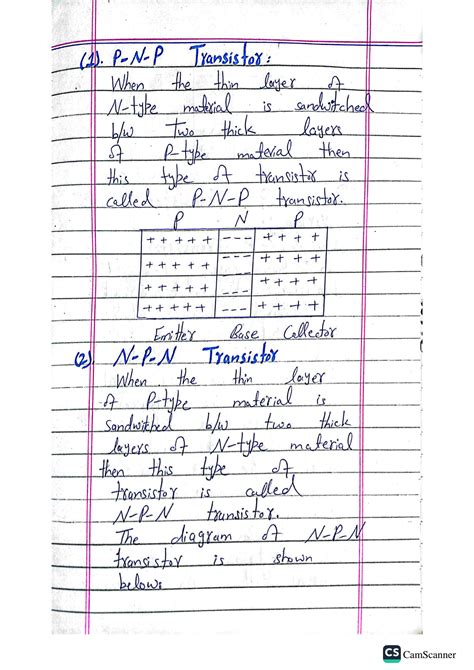 (1). P-N-P Transistor:
When the thin layer of
N-type material is sandwitched
b/w Two thick layers
of P-type material then
this type of transistor is
called P-N-P transistor.
P N P
+ + + + + - - - + + + +
+ + + + + - - - + + + +
+ + + + + - - - + + + +
+ + + + + - - - + + + +
Emitter Base Collector
(2) N-P-N Transistor
When the thin layer
of P-type material is
Sandwitched b/w two thick
layers of N-type material
then this type of
transistor is called
N-P-N transistor.
The diagram of N-P-N
transistor is shown
below:
CS CamScanner